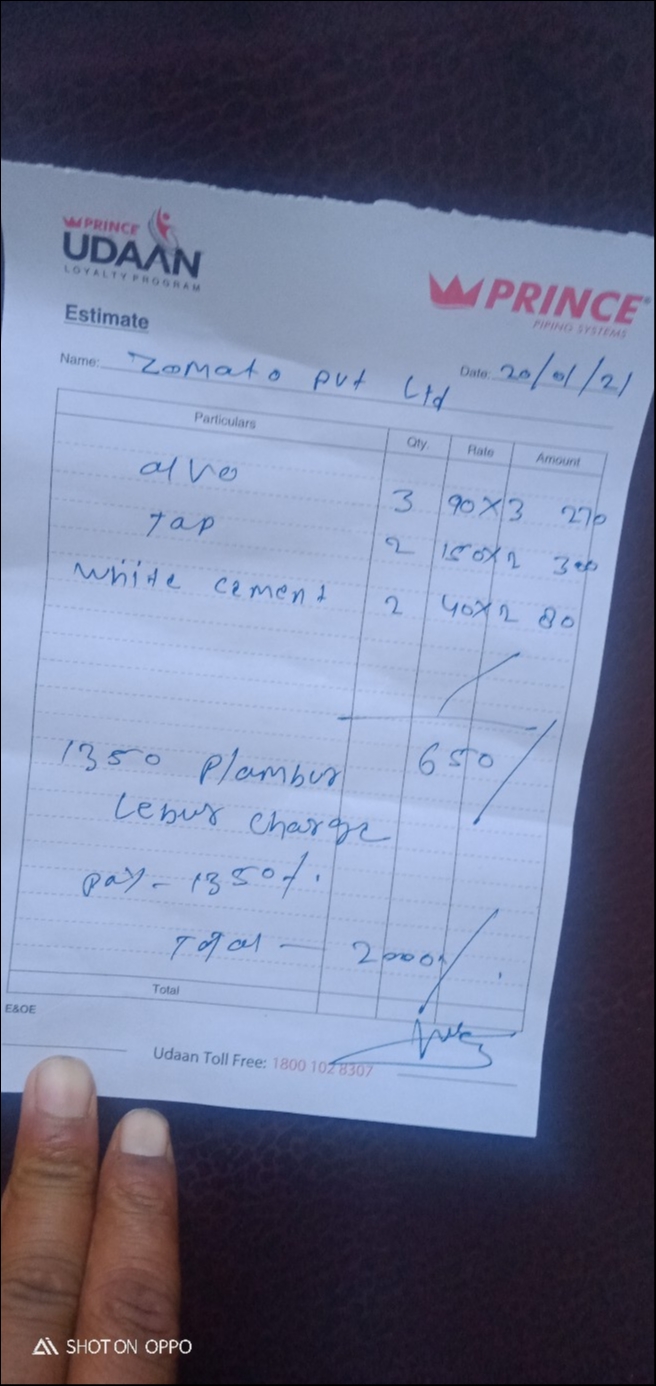 PRINCE
UDAAN
LOYALTY PROGRAM
PRINCE
PIPING SYSTEMS
Estimate
Name: Zomato Pvt Ltd Date: 20/01/21
Particulars Qty. Rate Amount
alve 3 90X3 270
Tap 2 150X2 300
White cement 2 40X2 80
650
1350 Plambur
Lebur charge
Pay - 1350/.
Total — 2000/
Total
E&OE
Udaan Toll Free: 1800 102 8307
SHOT ON OPPO